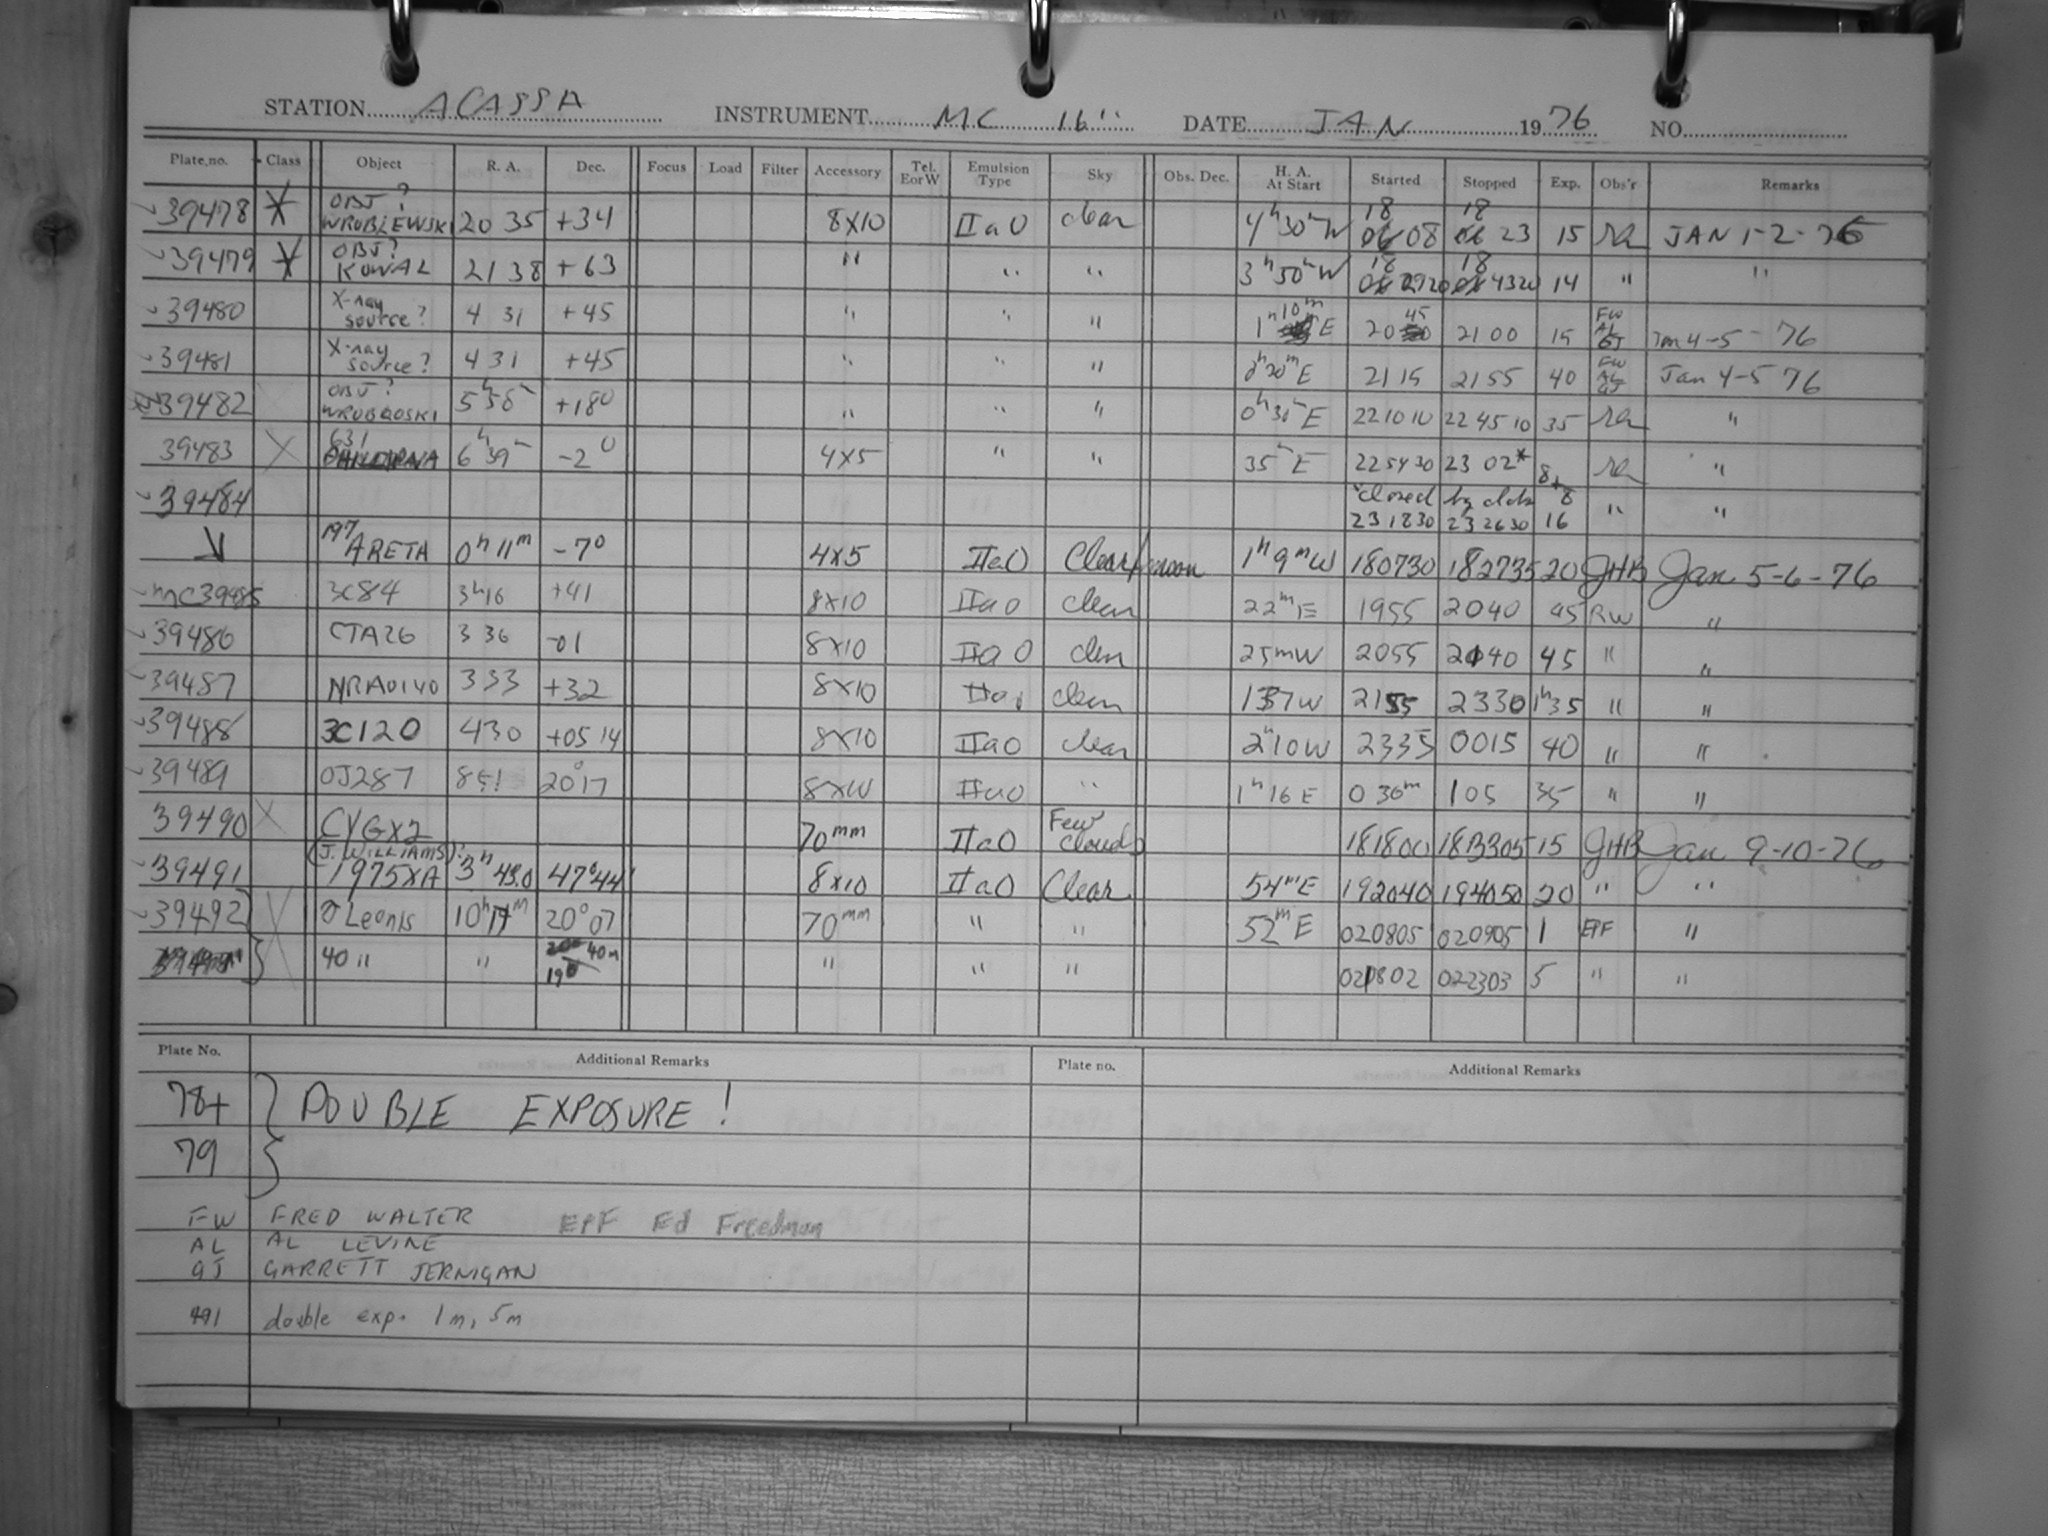 STATION ACASSA INSTRUMENT MC 16" DATE JAN 1976 NO.
Plate no. Class Object R. A. Dec. Focus Load Filter Accessory Tel. E or W Emulsion Type Sky Obs. Dec. H. A. At Start Started Stopped Exp. Obs'r Remarks
39478 OBJ? WROBLEWSKI 20 35 +34 8X10 IIaO clear 4h30m W 18 08 18 23 15 ra JAN 1-2-76
39479 OBJ? KOWAL 21 38 +63 " " " 3h50m W 18 2920 18 4320 14 " "
39480 X-ray source? 4 31 +45 " " " 1h10m E 20 45 21 00 15 FW AL GJ Jan 4-5-76
39481 X-ray source? 4 31 +45 " " " 0h30m E 2115 2155 40 FW AL GJ Jan 4-5 76
39482 OBJ? WROBLOSKI 5h58m +18° " " " 0h31m E 221010 224510 35 ra "
39483 631 6h39m -2° 4X5 " " 35m E 225430 23 02* 8+ ra "
39484 closed by 8 " "
231830 232630 16
↓ 197 ARETA 0h11m -7° 4X5 IIaO Clear/moon 1h9mW 180730 182735 20 JHB Jan 5-6-76
mc39485 3C84 3h16 +41 8X10 IIaO clear 22mE 1955 2040 45 RW "
39486 CTA26 3 36 -01 8X10 IIaO clear 25mW 2055 2140 45 " "
39487 NRAO140 333 +32 8X10 IIaO clear 137W 2155 2330 1h35 " "
39488 3C120 430 +05 14 8X10 IIaO clear 2h10W 2335 0015 40 " "
39489 OJ287 851 20°17 8X10 IIaO " 1h16E 0 30m 105 35 " "
39490 CYGX2 70mm IIaO Few Clouds 181800 183305 15 JHB Jan 9-10-76
39491 (J. WILLIAMS)? 1975XA 3h 43.0 47°44' 8X10 IIaO Clear 54mE 192040 194050 20 " "
39492 Leonis 10h17m 20°07 70mm " " 52mE 020805 020905 1 EPF "
40 " " 40m 19° " " " 021802 022303 5 " "
Plate No. Additional Remarks Plate no. Additional Remarks
78+ DOUBLE EXPOSURE!
79
FW FRED WALTER EPF Ed Freedman
AL AL LEVINE
GJ GARRETT JERNIGAN
491 double exp. 1m, 5m